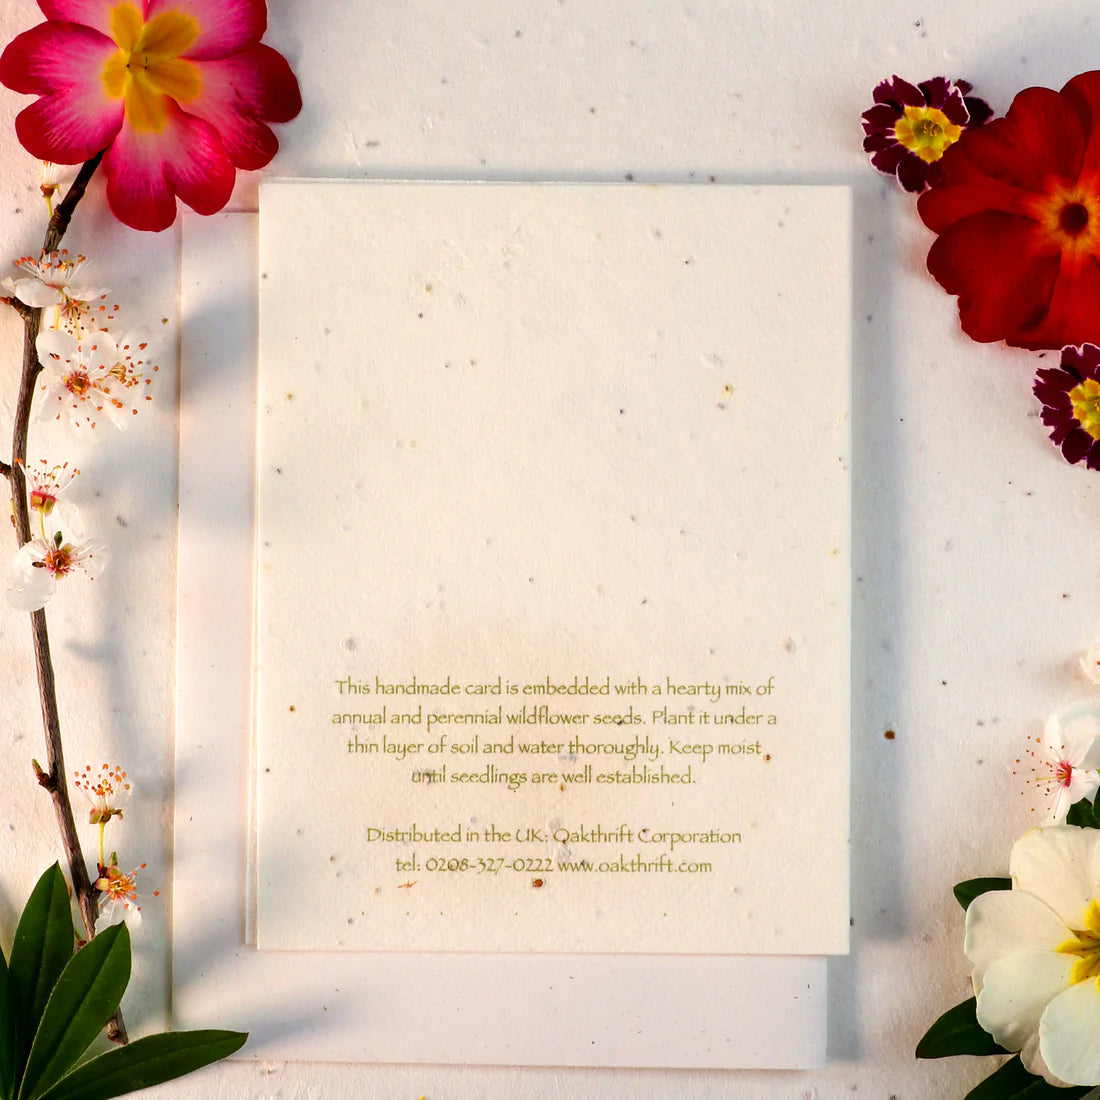 This handmade card is embedded with a hearty mix of
annual and perennial wildflower seeds. Plant it under a
thin layer of soil and water thoroughly. Keep moist
until seedlings are well established.
Distributed in the UK: Oakthrift Corporation
tel: 0208-327-0222 www.oakthrift.com